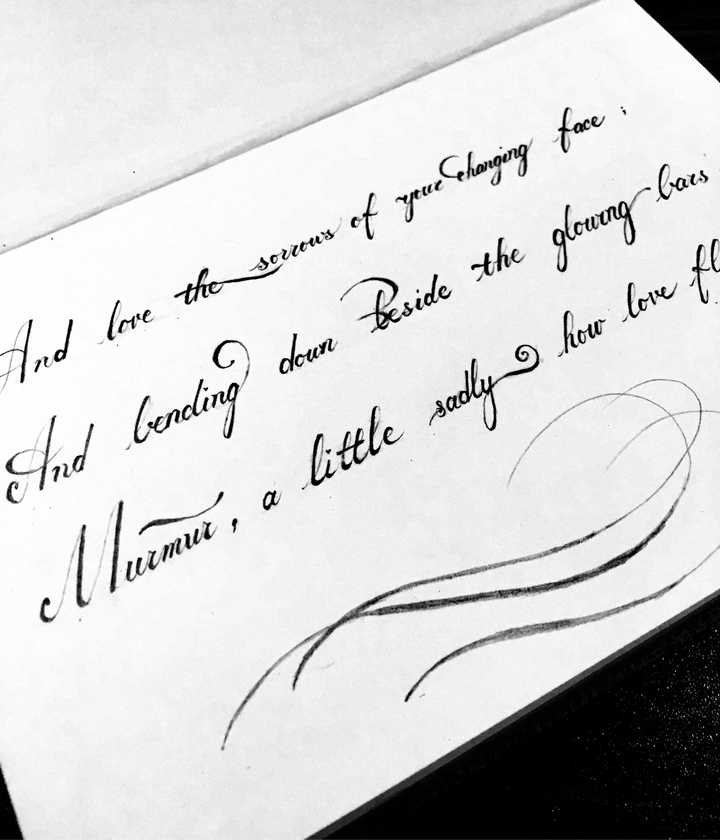 And love the sorrows of your changing face ;
And bending down Beside the glowing bars
Murmur, a little sadly how love